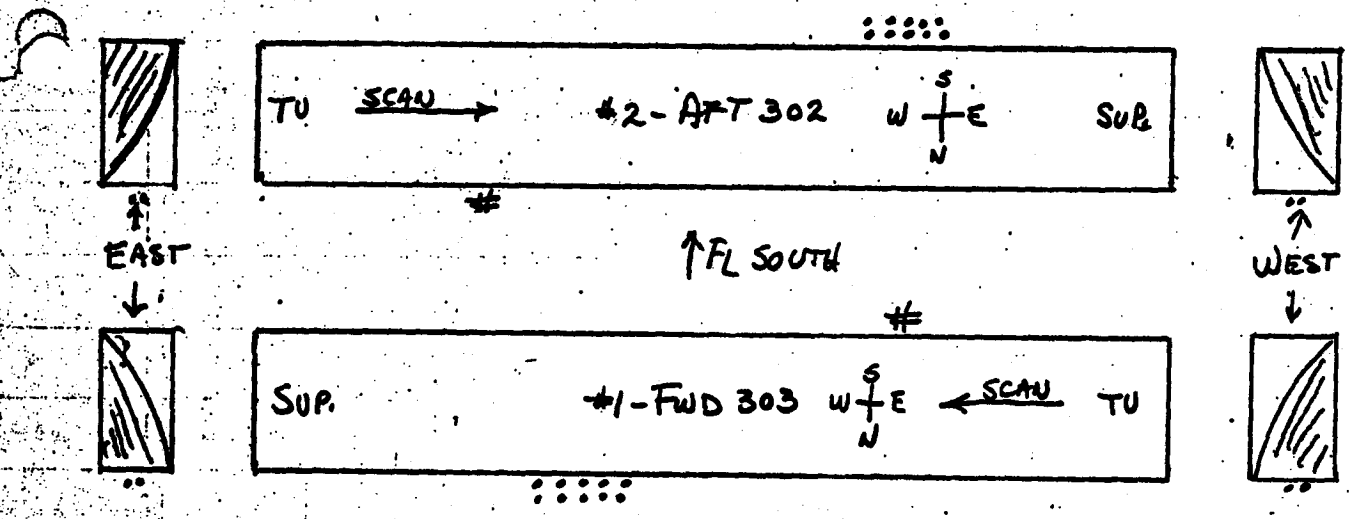 S
TU SCAN → #2-AFT 302 W E SUP.
N
#
EAST ↑FL SOUTH WEST
#
S
SUP. #1-FWD 303 W E ← SCAN TU
N